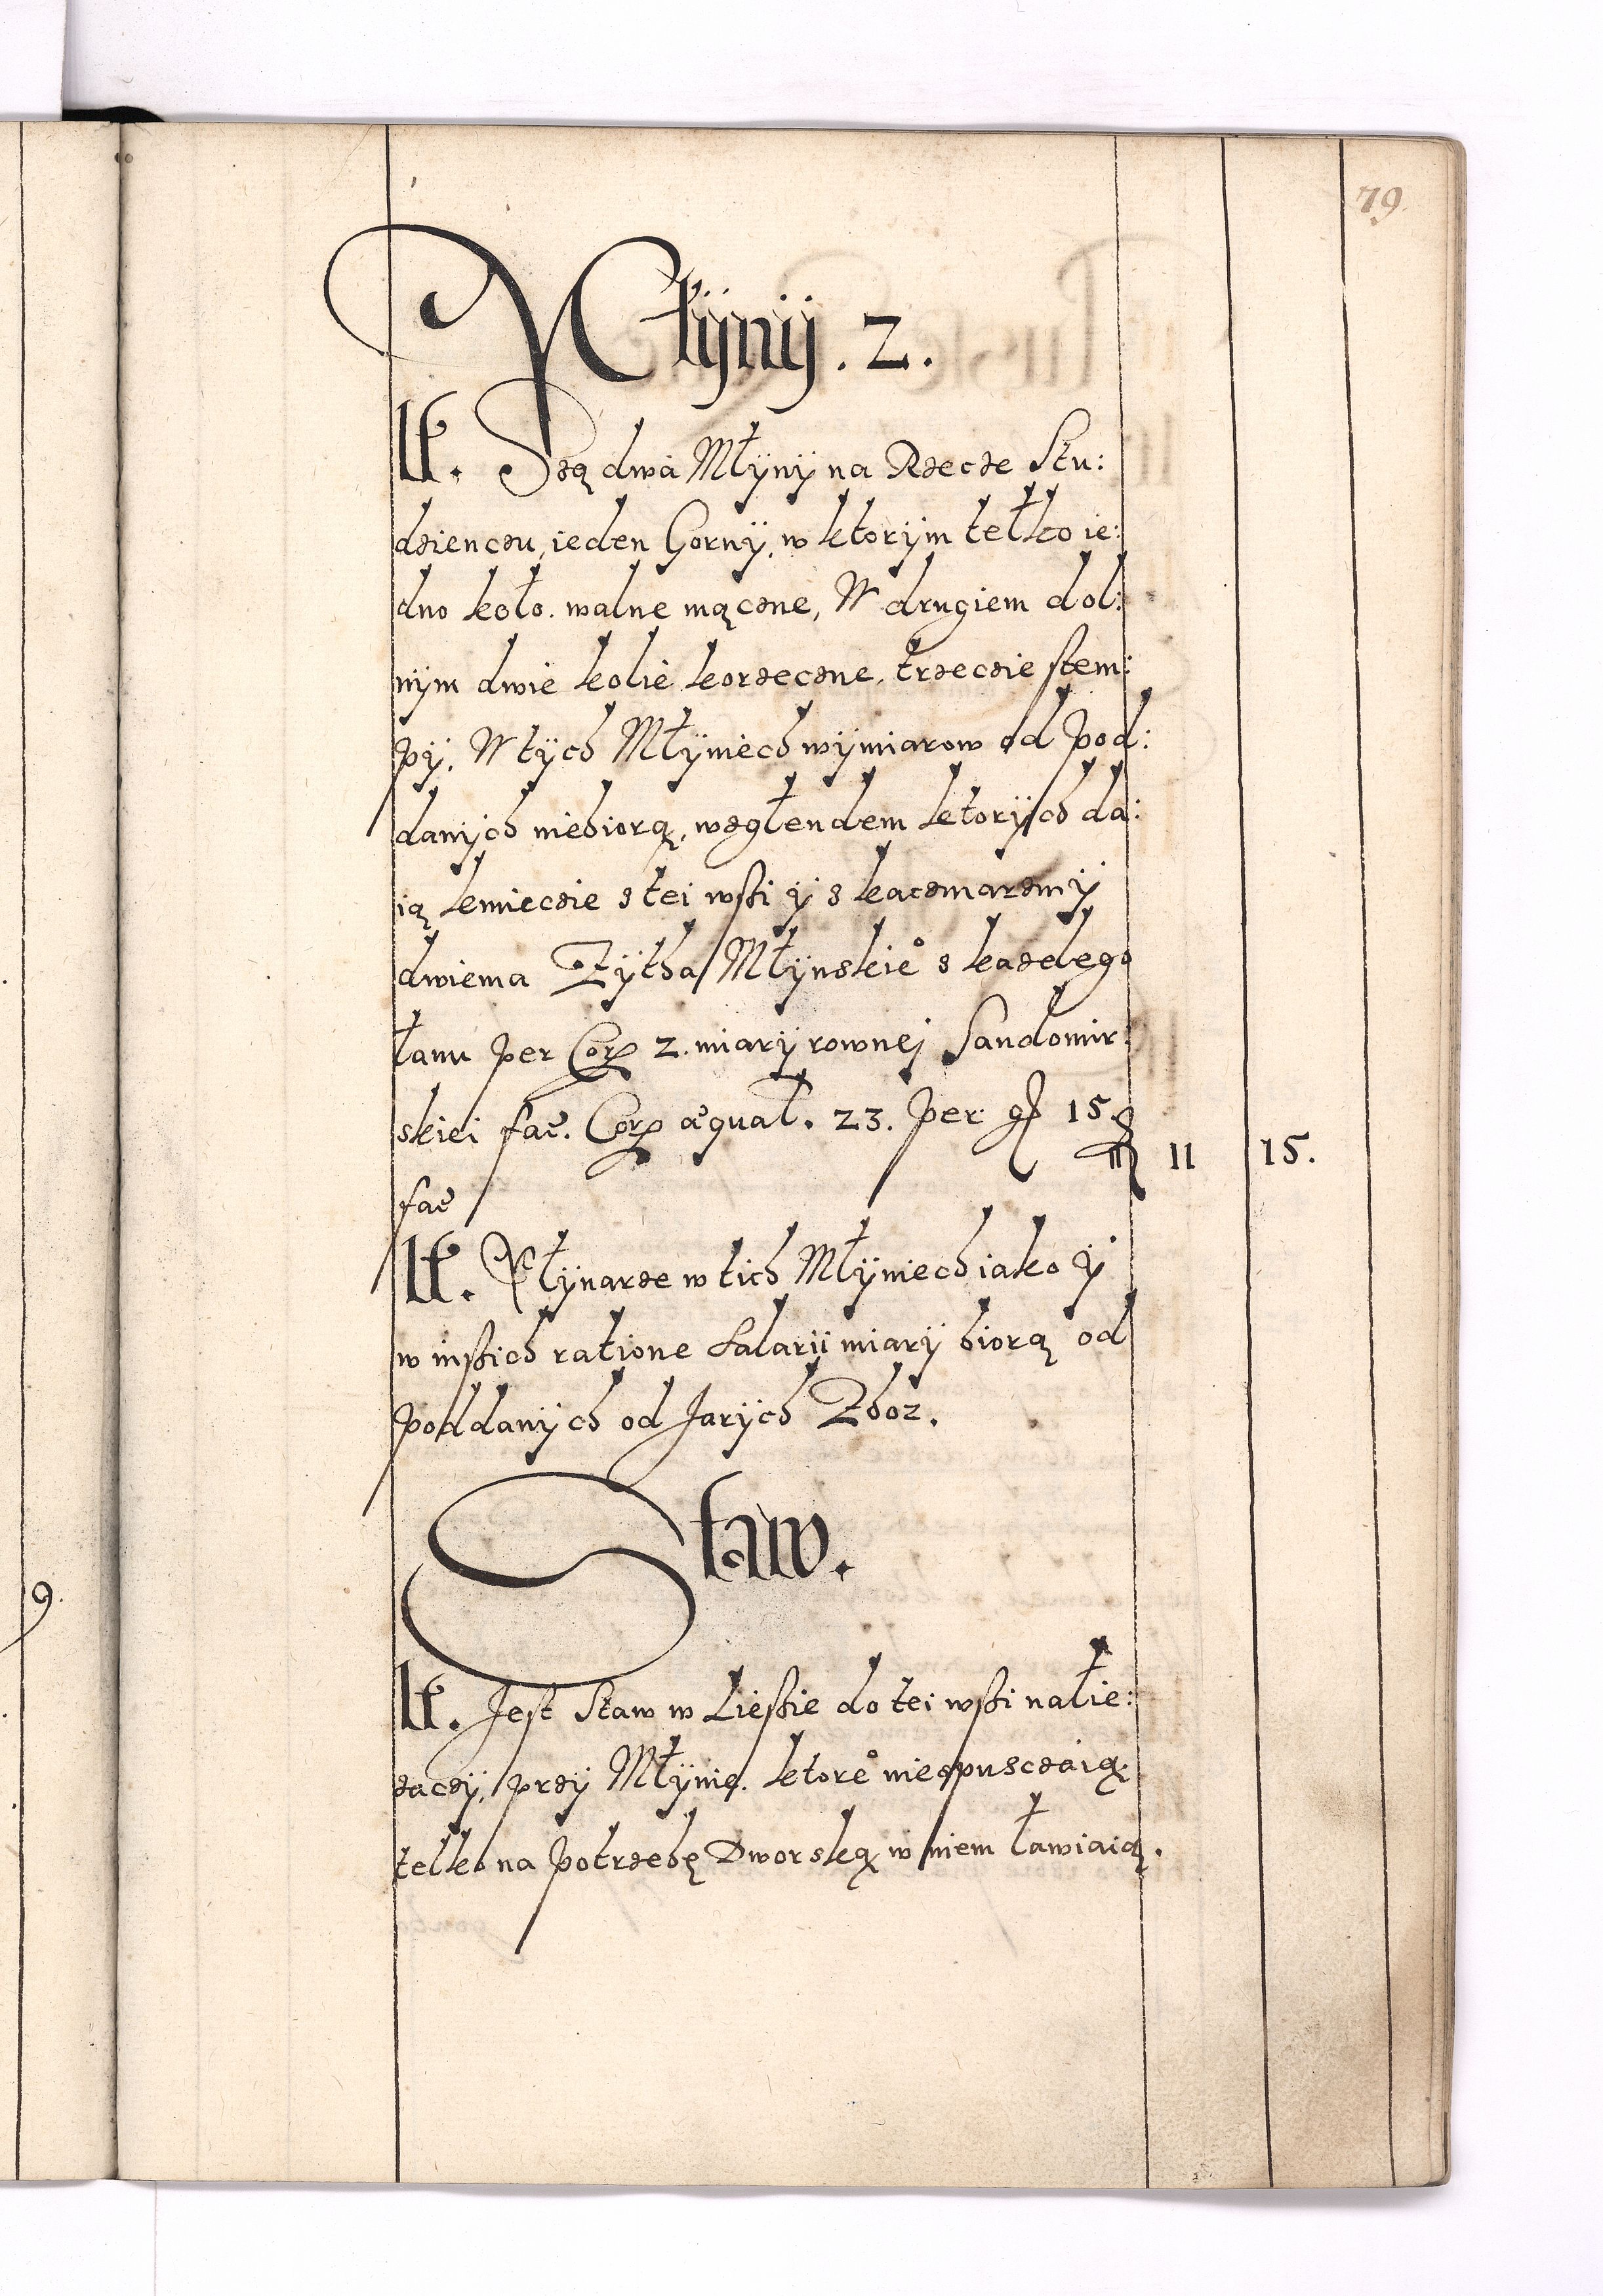 79.
Młÿnÿ . 2 .
It. Są dwa Młÿnÿ na Rzecze Stu:
dzienczu, ieden Gornÿ, w ktorÿm telko ie:
dno koło walne mączne, W drugiem dol:
nÿm dwie kolie korzeczne, trzeczie stem:
pÿ. W tÿch Młÿniech wÿmiarow od Pod:
danÿch niebiorą, wzglendem ktorÿch da:
ią kmieczie s tei wsßi ÿ s kaczmarzmÿ
dwiema Zÿtha Młÿnskieo s kazdego
łanu per Cor 2. miarÿ rownej Sandomir:
skiei fac. Cor æqual. 23. per gr 15.
fac
m 11 15.
It. Młÿnarze w tich Młÿniech iako ÿ
w inßich ratione Salarii miarÿ biorą od
poddanÿch od Jarÿch Zboz.
Staw.
It. Jest Staw w Ließie do tei wßi nalie:
zaczÿ, przÿ Młÿnie. ktoreo nie spusczaią,
telko na potrzebę Dworską w niemławiaią.
9.